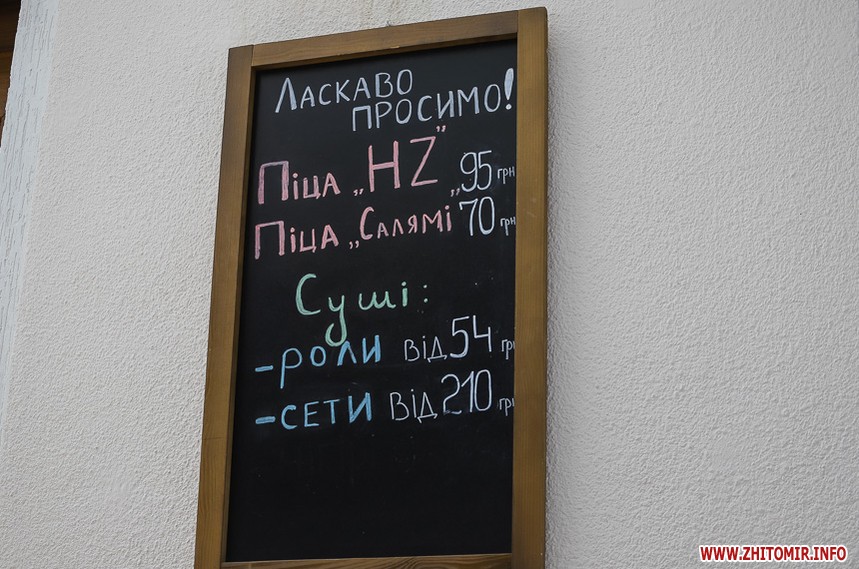 Ласкаво
просимо!
Піца „HZ" 95 грн
Піца „Салямі 70 грн
Суші:
-роли від 54 гр
-сети від 210 гр
WWW.ZHITOMIR.INFO